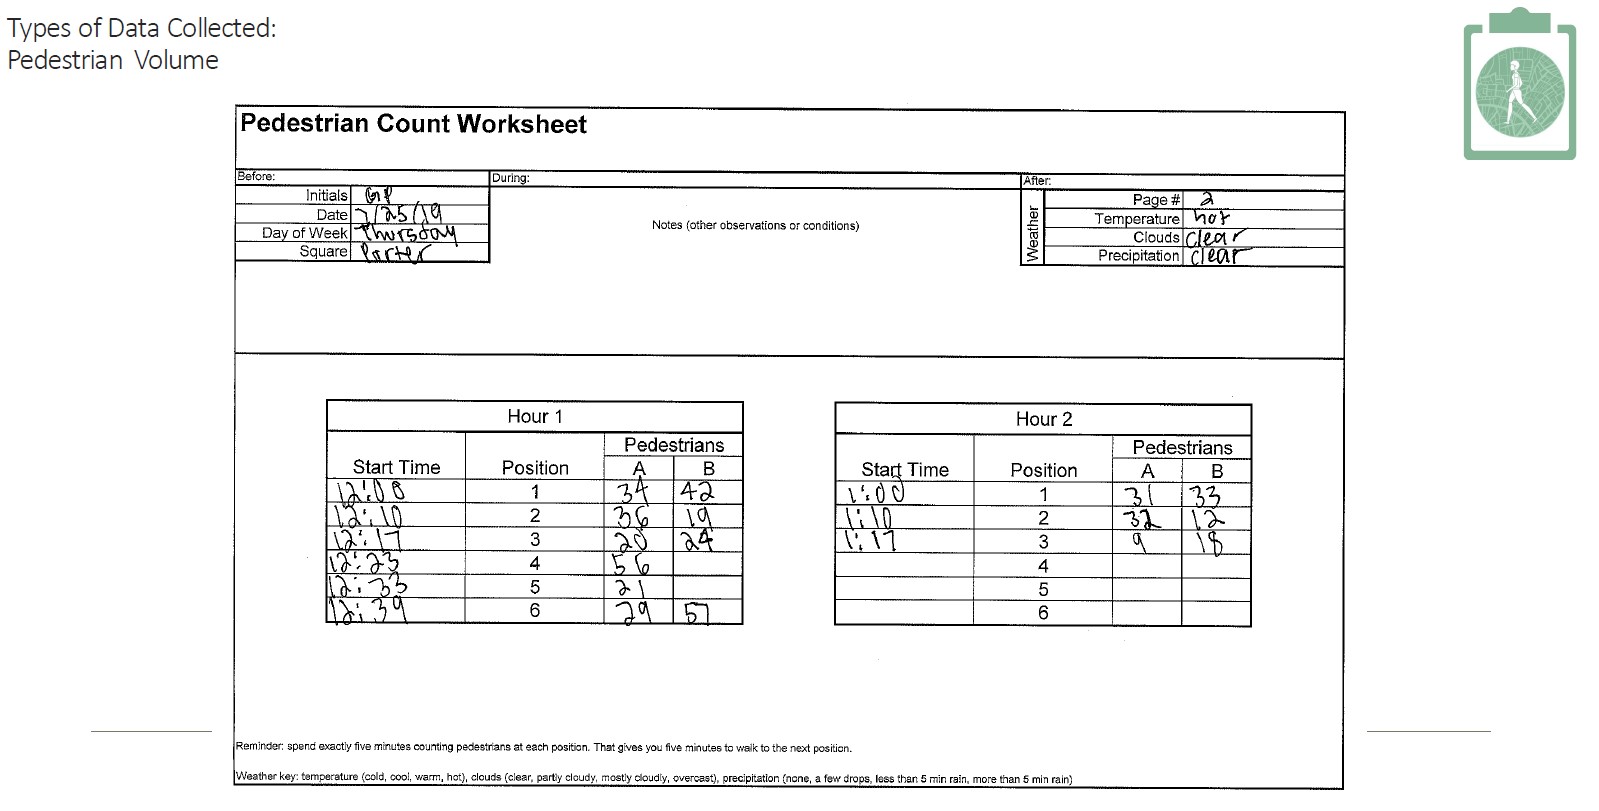 Types of Data Collected:
Pedestrian Volume
Pedestrian Count Worksheet
Before:
Initials GP
Date 7/25/19
Day of Week Thursday
Square Porter
During:
Notes (other observations or conditions)
After:
Weather
Page # 2
Temperature hot
Clouds clear
Precipitation clear
Hour 1
Pedestrians
Start Time Position A B
12:00 1 34 42
12:10 2 36 19
12:17 3 20 24
12:23 4 56
12:33 5 21
12:39 6 29 57
Hour 2
Pedestrians
Start Time Position A B
1:00 1 31 33
1:10 2 32 12
1:17 3 9 18
4
5
6
Reminder: spend exactly five minutes counting pedestrians at each position. That gives you five minutes to walk to the next position.
Weather key: temperature (cold, cool, warm, hot), clouds (clear, partly cloudy, mostly cloudly, overcast), precipitation (none, a few drops, less than 5 min rain, more than 5 min rain)